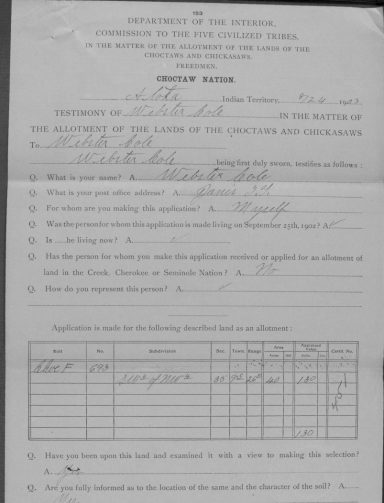 DEPARTMENT OF THE INTERIOR,
COMMISSION TO THE FIVE CIVILIZED TRIBES.
IN THE MATTER OF THE ALLOTMENT OF THE LANDS OF THE
CHOCTAWS AND CHICKASAWS.
FREEDMEN.
CHOCTAW NATION.
Atoka Indian Territory, 190
TESTIMONY OF Webster Cole IN THE MATTER OF
THE ALLOTMENT OF THE LANDS OF THE CHOCTAWS AND CHICKASAWS
To Webster Cole
Webster Cole being first duly sworn, testifies as follows:
Q. What is your name? A. Webster Cole
Q. What is your post office address? A.
Q. For whom are you making this application? A. Myself
Q. Was the person for whom this application is made living on September 25th, 1902? A. ✓
Q. Is he living now? A. ✓
Q. Has the person for whom you make this application received or applied for an allotment of
land in the Creek, Cherokee or Seminole Nation? A. No
Q. How do you represent this person? A. ✓
Application is made for the following described land as an allotment:
Roll No. Subdivision Sec. Town Range Area Appraised Value Certif. No.
Choc F 693
of 40 130
130
Q. Have you been upon this land and examined it with a view to making this selection?
A.
Q. Are you fully informed as to the location of the same and the character of the soil? A.